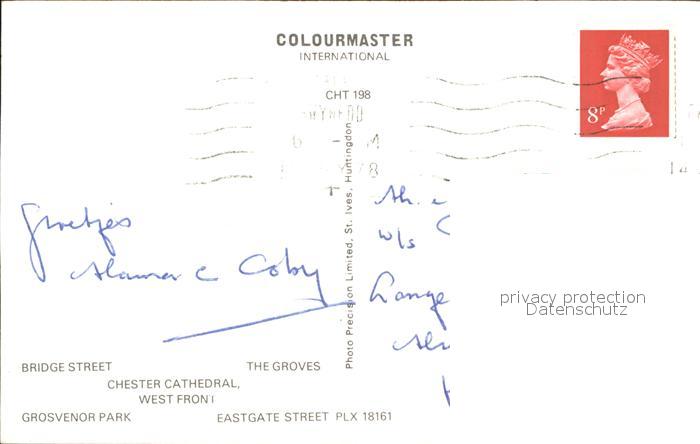 COLOURMASTER
INTERNATIONAL
CHT 198
8P
Photo Precision Limited, St. Ives, Huntingdon
Groetjes
Coby
w/s
Lange
privacy protection
Datenschutz
BRIDGE STREET
THE GROVES
CHESTER CATHEDRAL,
WEST FRONT
GROSVENOR PARK
EASTGATE STREET PLX 18161